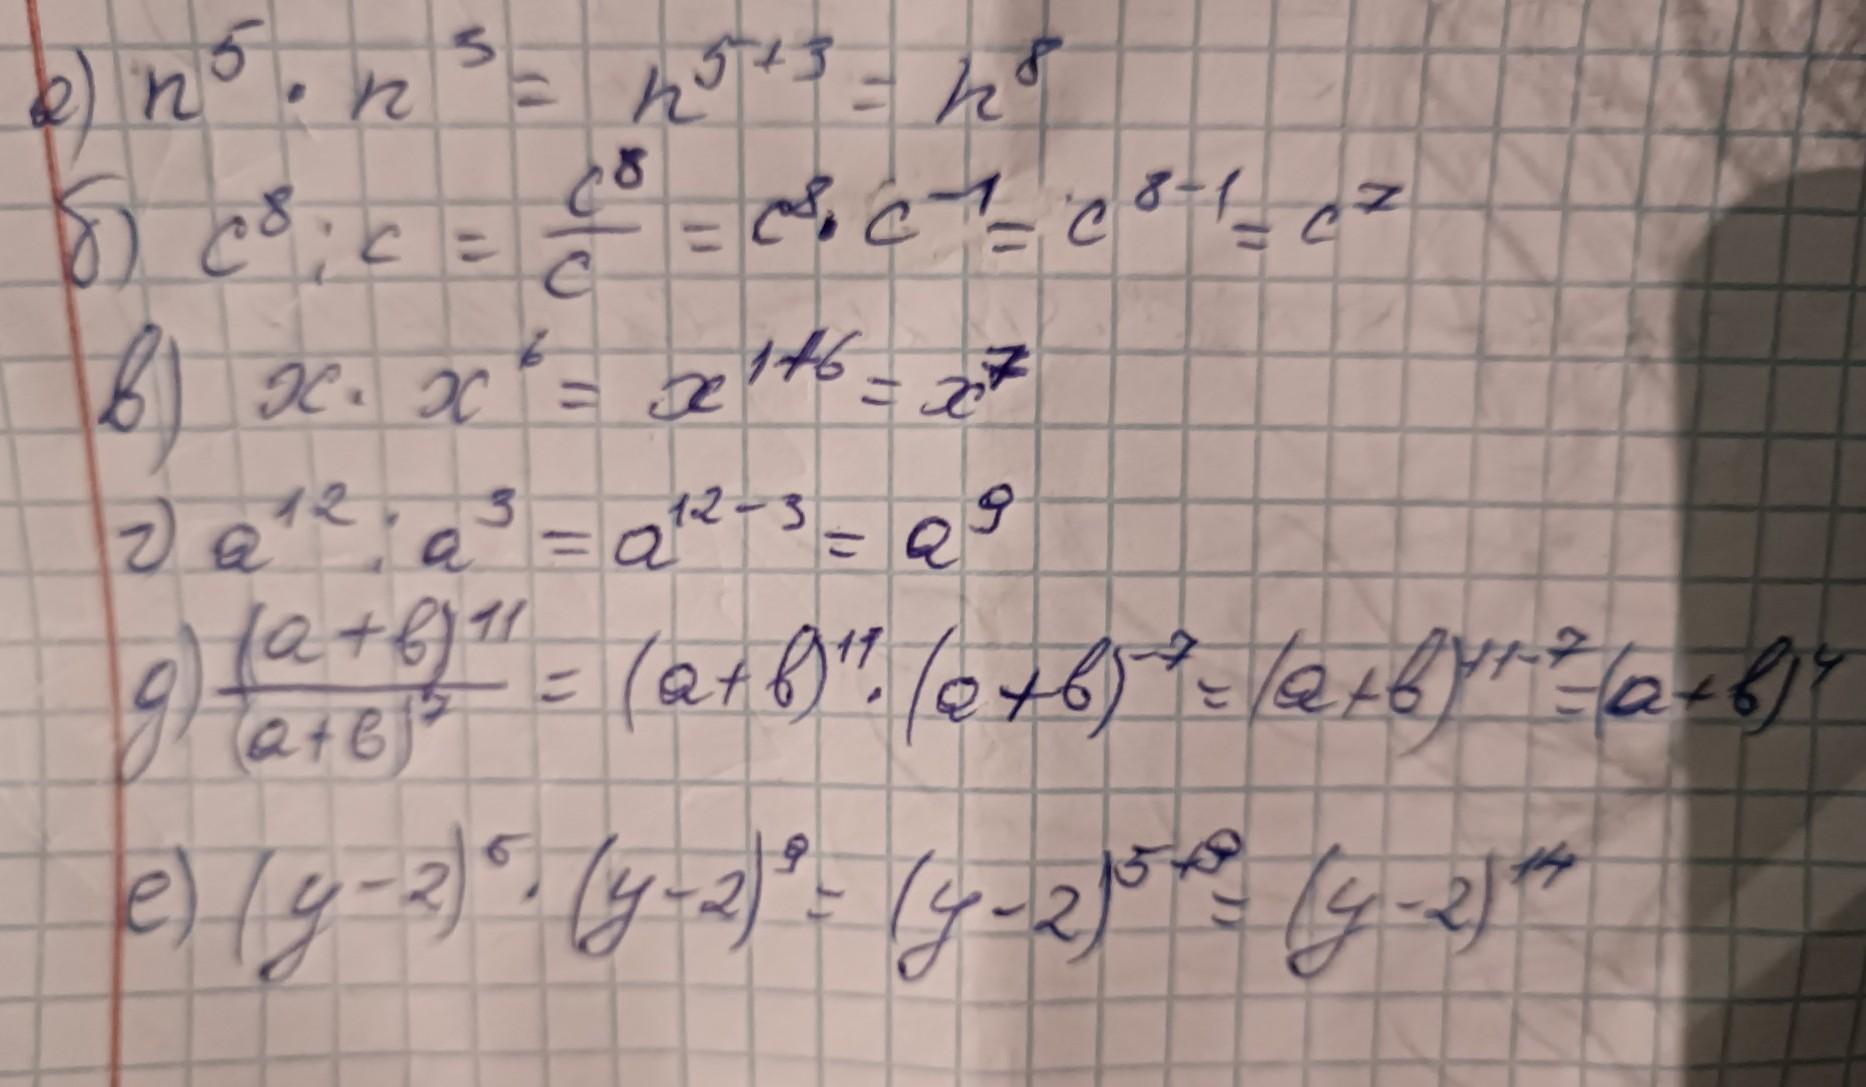 а) n⁵ · n³ = n⁵⁺³ = n⁸
б) c⁸ : c = c⁸/c = c⁸ · c⁻¹ = c⁸⁻¹ = c⁷
в) x · x⁶ = x¹⁺⁶ = x⁷
г) a¹² : a³ = a¹²⁻³ = a⁹
д) (a+b)¹¹/(a+b)⁷ = (a+b)¹¹ · (a+b)⁻⁷ = (a+b)¹¹⁻⁷ = (a+b)⁴
е) (y-2)⁵ · (y-2)⁹ = (y-2)⁵⁺⁹ = (y-2)¹⁴